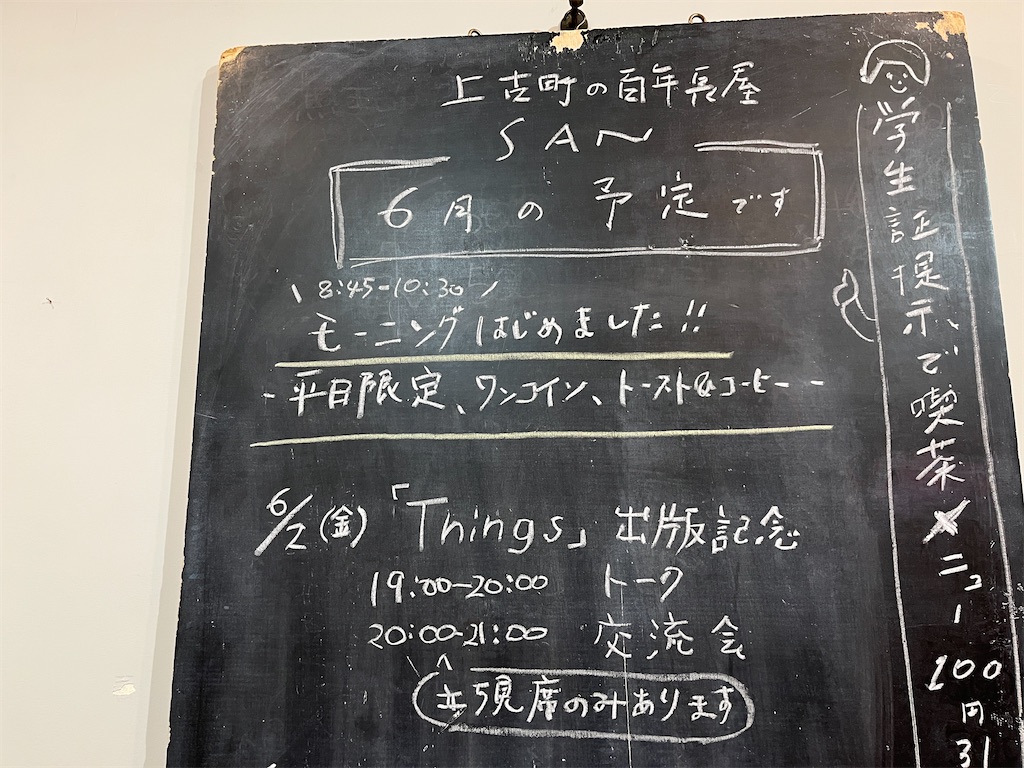 上古町の百年長屋
SAN
6月の予定です
8:45-10:30
モーニングはじめました!!
-平日限定、ワンコイン、トースト&コーヒー-
6/2(金)「Things」出版記念
19:00-20:00 トーク
20:00-21:00 交流会
立ち見席のみあります
学生証提示で喫茶メニュー100円引